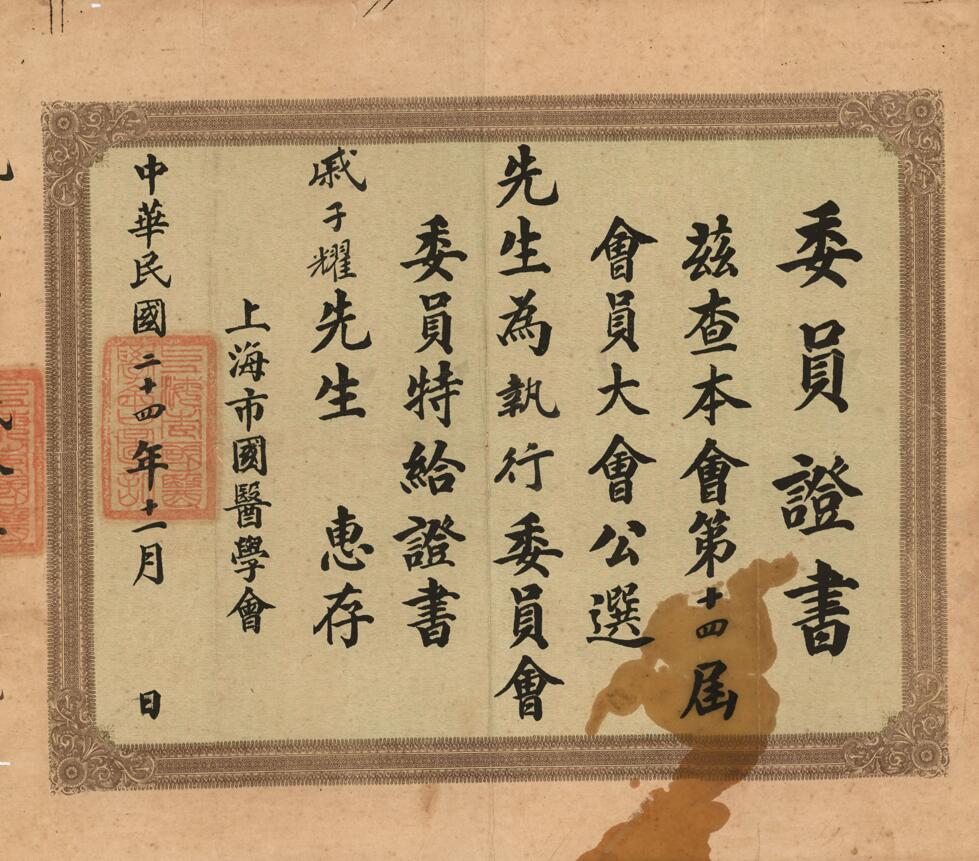 委員證書
茲查本會第十四屆
會員大會公選
先生為執行委員會
委員特給證書
戚子耀先生 惠存
上海市國醫學會
中華民國二十四年十一月 日